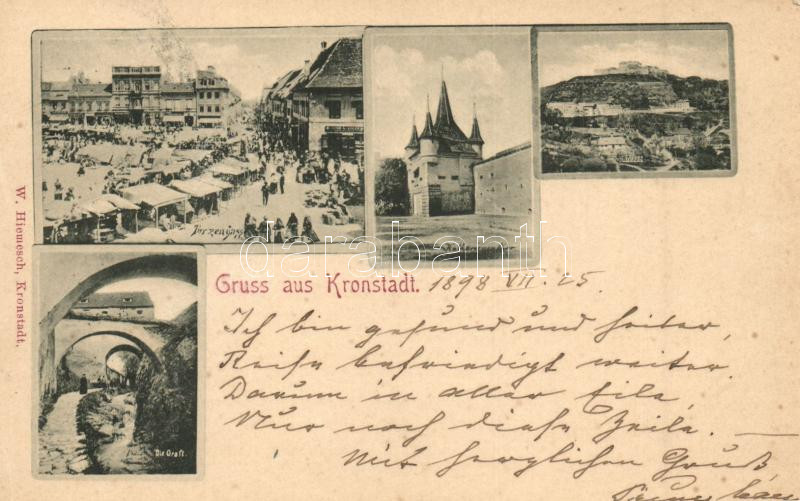 Purzengasse
Gruss aus Kronstadt. 1898 VII. 25.
Ich bin gesund und heiter,
Reise befriedigt weiter.
Darum in aller Eile,
Nur noch diese Zeile. —
Mit herzlichen Gruß
Die Graft.
W. Hiemesch, Kronstadt.
darabanth.com